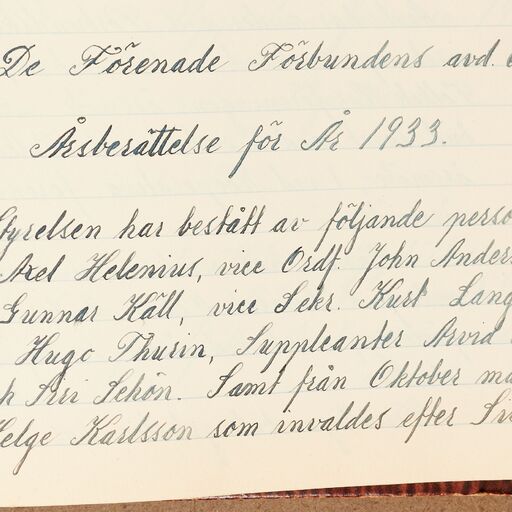 De Förenade Förbundens avd.
Årsberättelse för År 1933.
Styrelsen har bestått av följande perso
Axel Helenius, vice Ordf. John Anders
Gunnar Käll, vice Sekr. Kurt Lang
Hugo Thurin, Suppleanter Arvid
h Siri Schön. Samt från Oktober må
Helge Karlsson som invaldes efter